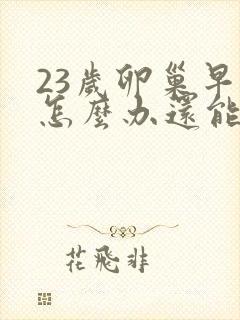 23歲卵巢早
怎麼办還能
花飛非